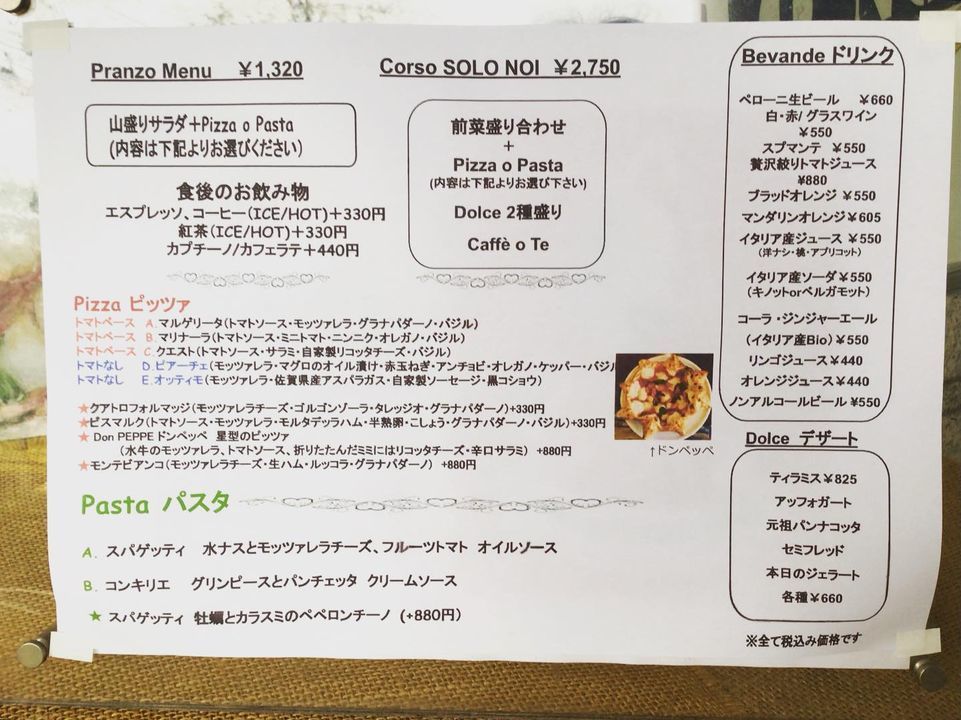 Pranzo Menu ￥1,320
山盛りサラダ＋Pizza o Pasta
(内容は下記よりお選びください)
食後のお飲み物
エスプレッソ、コーヒー(ICE/HOT)＋330円
紅茶(ICE/HOT)＋330円
カプチーノ/カフェラテ＋440円
Corso SOLO NOI ￥2,750
前菜盛り合わせ
+
Pizza o Pasta
(内容は下記よりお選び下さい)
Dolce 2種盛り
Caffè o Te
Pizza ピッツァ
トマトベース A.マルゲリータ(トマトソース・モッツァレラ・グラナパダーノ・バジル)
トマトベース B.マリナーラ(トマトソース・ミニトマト・ニンニク・オレガノ・バジル)
トマトベース C.クエスト(トマトソース・サラミ・自家製リコッタチーズ・バジル)
トマトなし D.ピアーチェ(モッツァレラ・マグロのオイル漬け・赤玉ねぎ・アンチョビ・オレガノ・ケッパー・バジル
トマトなし E.オッティモ(モッツァレラ・佐賀県産アスパラガス・自家製ソーセージ・黒コショウ)
★クアトロフォルマッジ(モッツァレラチーズ・ゴルゴンゾーラ・タレッジオ・グラナパダーノ)+330円
★ビスマルク(トマトソース・モッツァレラ・モルタデッラハム・半熟卵・こしょう・グラナパダーノ・バジル)+330円
★ Don PEPPE ドンペッペ 星型のピッツァ
(水牛のモッツァレラ、トマトソース、折りたたんだミミにはリコッタチーズ・辛口サラミ) +880円
★モンテビアンコ(モッツァレラチーズ・生ハム・ルッコラ・グラナパダーノ) +880円
↑ドンペッペ
Pasta パスタ
A. スパゲッティ 水ナスとモッツァレラチーズ、フルーツトマト オイルソース
B. コンキリエ グリンピースとパンチェッタ クリームソース
★ スパゲッティ 牡蠣とカラスミのペペロンチーノ (+880円)
Bevande ドリンク
ペローニ生ビール ￥660
白・赤/ グラスワイン
￥550
スプマンテ ￥550
贅沢絞りトマトジュース
¥880
ブラッドオレンジ ￥550
マンダリンオレンジ￥605
イタリア産ジュース ￥550
(洋ナシ・桃・アプリコット)
イタリア産ソーダ￥550
(キノットorベルガモット)
コーラ・ジンジャーエール
(イタリア産Bio) ￥550
リンゴジュース￥440
オレンジジュース￥440
ノンアルコールビール ¥550
Dolce デザート
ティラミス￥825
アッフォガート
元祖パンナコッタ
セミフレッド
本日のジェラート
各種￥660
※全て税込み価格です